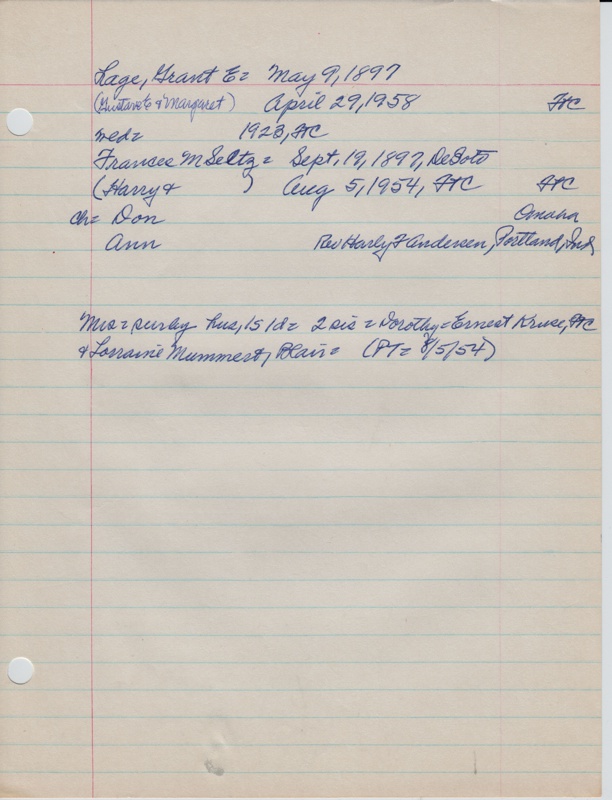 Lage, Grant E= May 9, 1897
(Gustave & Margaret) April 29, 1958 FtC
wed= 1923, FtC
Frances M Seltz= Sept. 19, 1897, DeSoto
(Harry & ) Aug 5, 1954, FtC FtC
ch= Don Omaha
Ann Rev Harly F Andersen, Portland, Ind
Mrs= surby hus, 1s 1d= 2 sis= Dorothy=Ernest Kruse, FtC
& Lorraine Mummert, Blair= (PT= 8/5/54)